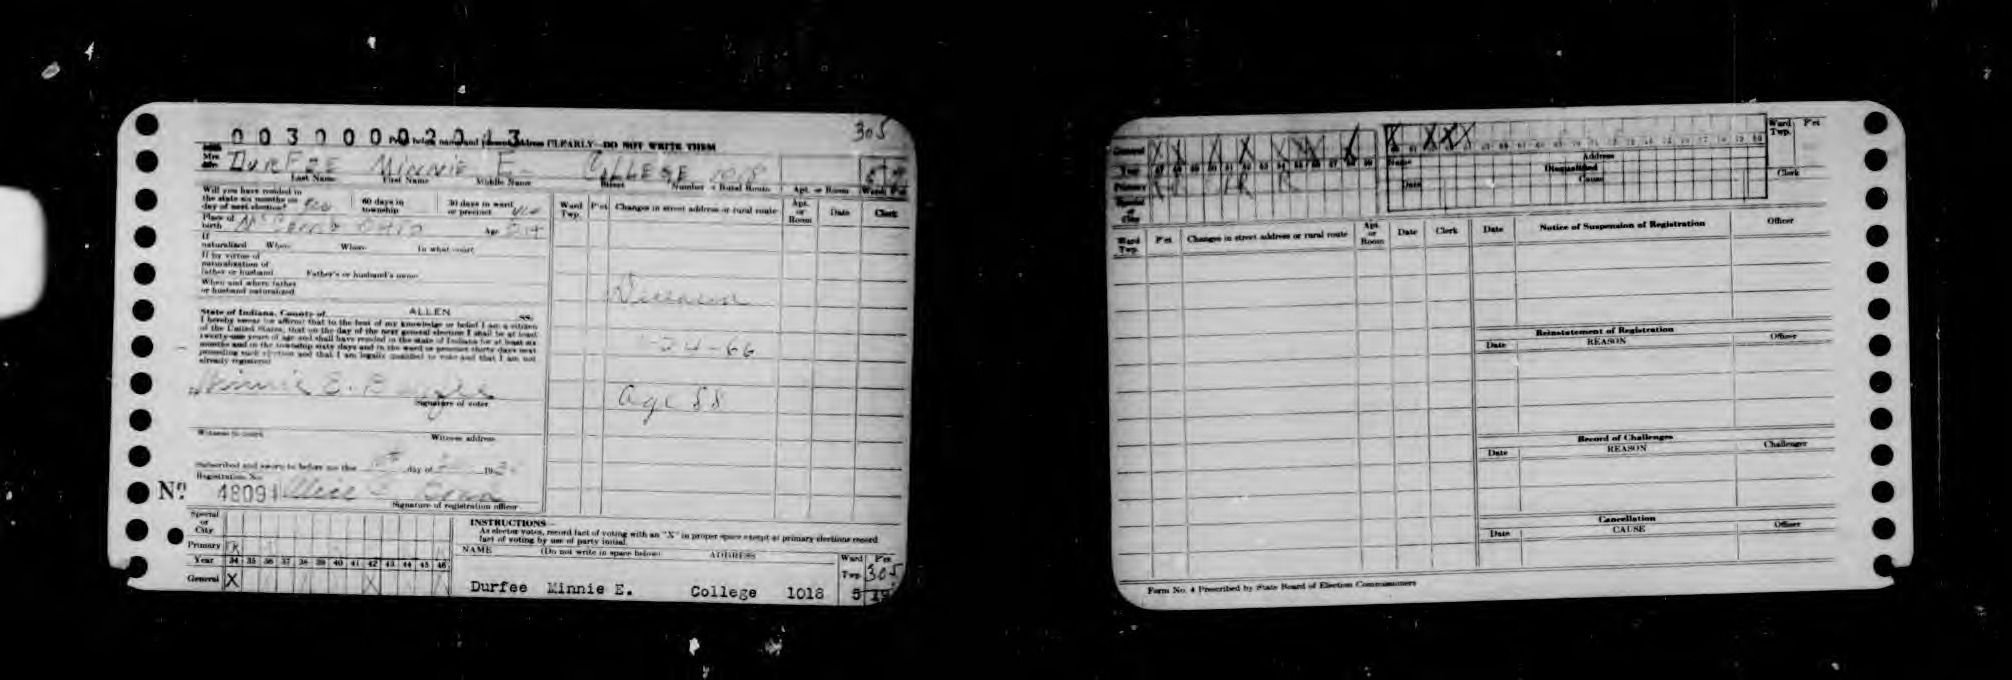 003000002013
305
Print below name and present address CLEARLY—DO NOT WRITE THEM
Mrs. DURFEE MINNIE E. COLLEGE 1018
Last Name First Name Middle Name Street Number or Rural Route Apt. or Room Ward Pct
Will you have resided in the state six months on day of next election? yes 60 days in township 30 days in ward or precinct yes
Place of birth OHIO Age
If naturalized When Where In what court
If by virtue of naturalization of father or husband Father's or husband's name
When and where father or husband naturalized
State of Indiana, County of ALLEN ss.
I hereby swear (or affirm) that to the best of my knowledge or belief I am a citizen
of the United States, that on the day of the next general election I shall be at least
twenty-one years of age and shall have resided in the state of Indiana for at least six
months and in the township sixty days and in the ward or precinct thirty days next
preceding such election and that I am legally qualified to vote and that I am not
already registered
Minnie E. Durfee
Signature of voter
Witness to mark Witness address
Subscribed and sworn to before me this day of 19
Registration No.
No. 48091
Signature of registration officer
Ward Twp. P'ct Changes in street address or rural route Apt. or Room Date Clerk
Deceased
-24-66
Age 88
Special or City
Primary R
Year 34 35 36 37 38 39 40 41 42 43 44 45 46
General X
INSTRUCTIONS—
As elector votes, record fact of voting with an "X" in proper space except at primary elections record
fact of voting by use of party initial.
NAME (Do not write in space below) ADDRESS Ward Twp. Pct
305
Durfee Minnie E. College 1018 5 19
General X X X X X X X X
Year 47 48 49 50 51 52 53 54 55 56 57 58 59
Primary
Special or City
X X X X X
Ward Twp. P'ct
Name Address
Disqualified
Date Cause Clerk
Ward Twp. P'ct Changes in street address or rural route Apt. or Room Date Clerk
Date Notice of Suspension of Registration Officer
Reinstatement of Registration
Date REASON Officer
Record of Challenges
Date REASON Challenger
Cancellation
Date CAUSE Officer
Form No. 4 Prescribed by State Board of Election Commissioners